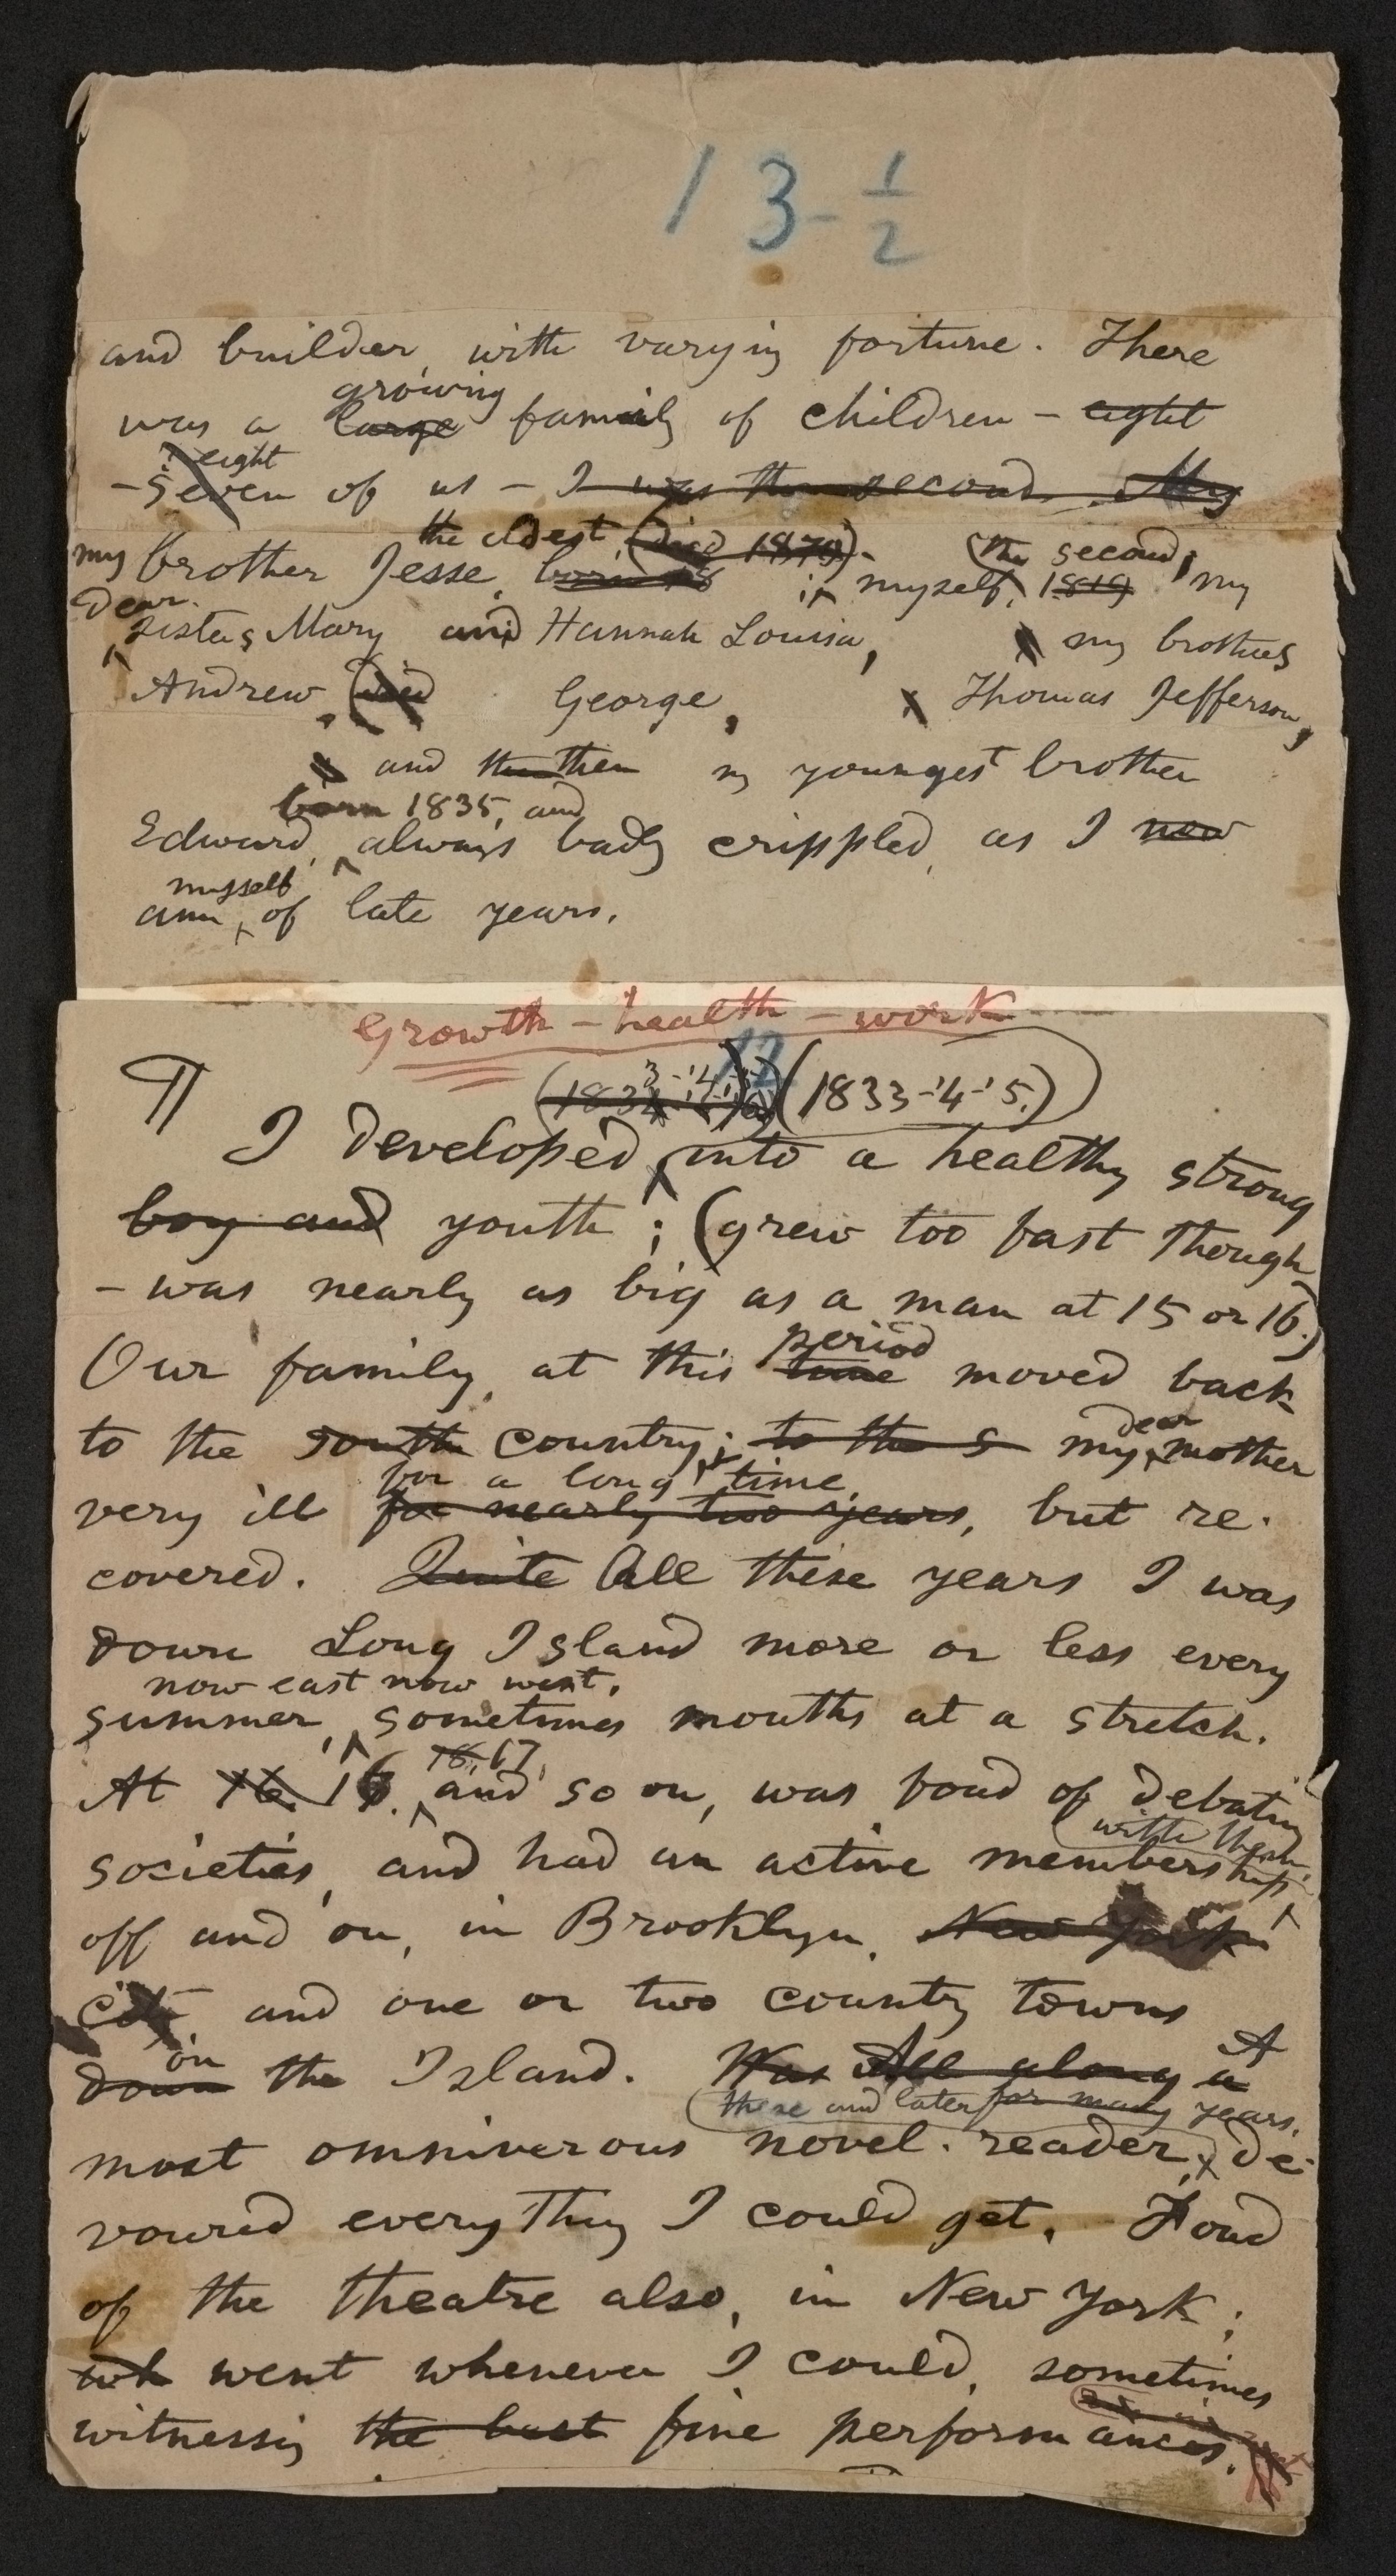 13-½
and builder, with varying fortune. There
growing
was a large family of children - eight
eight
- seven of us - I was the second. My
the eldest, (died 1870) - (the second,
my brother Jesse, born 18 myself, 1819 my
dear
sisters Mary and Hannah Louisa, my brothers
Andrew, (died George, Thomas Jefferson,
and then my youngest brother
born 1835, and
Edward, always badly crippled, as I now
myself
am, of late years.
Growth - health - work
12
(1833-'4-'5.)
¶ I developed into a healthy strong
boy and youth; (grew too fast though
- was nearly as big as a man at 15 or 16.)
period
Our family, at this time moved back
dear
to the south country; to the s my mother
for a long time,
very ill for nearly two years, but re-
covered. Quite All these years I was
down Long Island more or less every
now east now west,
summer, sometimes months at a stretch.
18, 17,
At 16, 16, and so on, was fond of debating
with them,
societies, and had an active membership
off and on, in Brooklyn, New York
city and one or two country towns
on A
down the Island. Was All along a
these and later for many years,
most omniverous novel-reader, de-
voured everything I could get. Fond
of the theatre also, in New York;
wh went whenever I could, sometimes
witnessing the best fine performances.